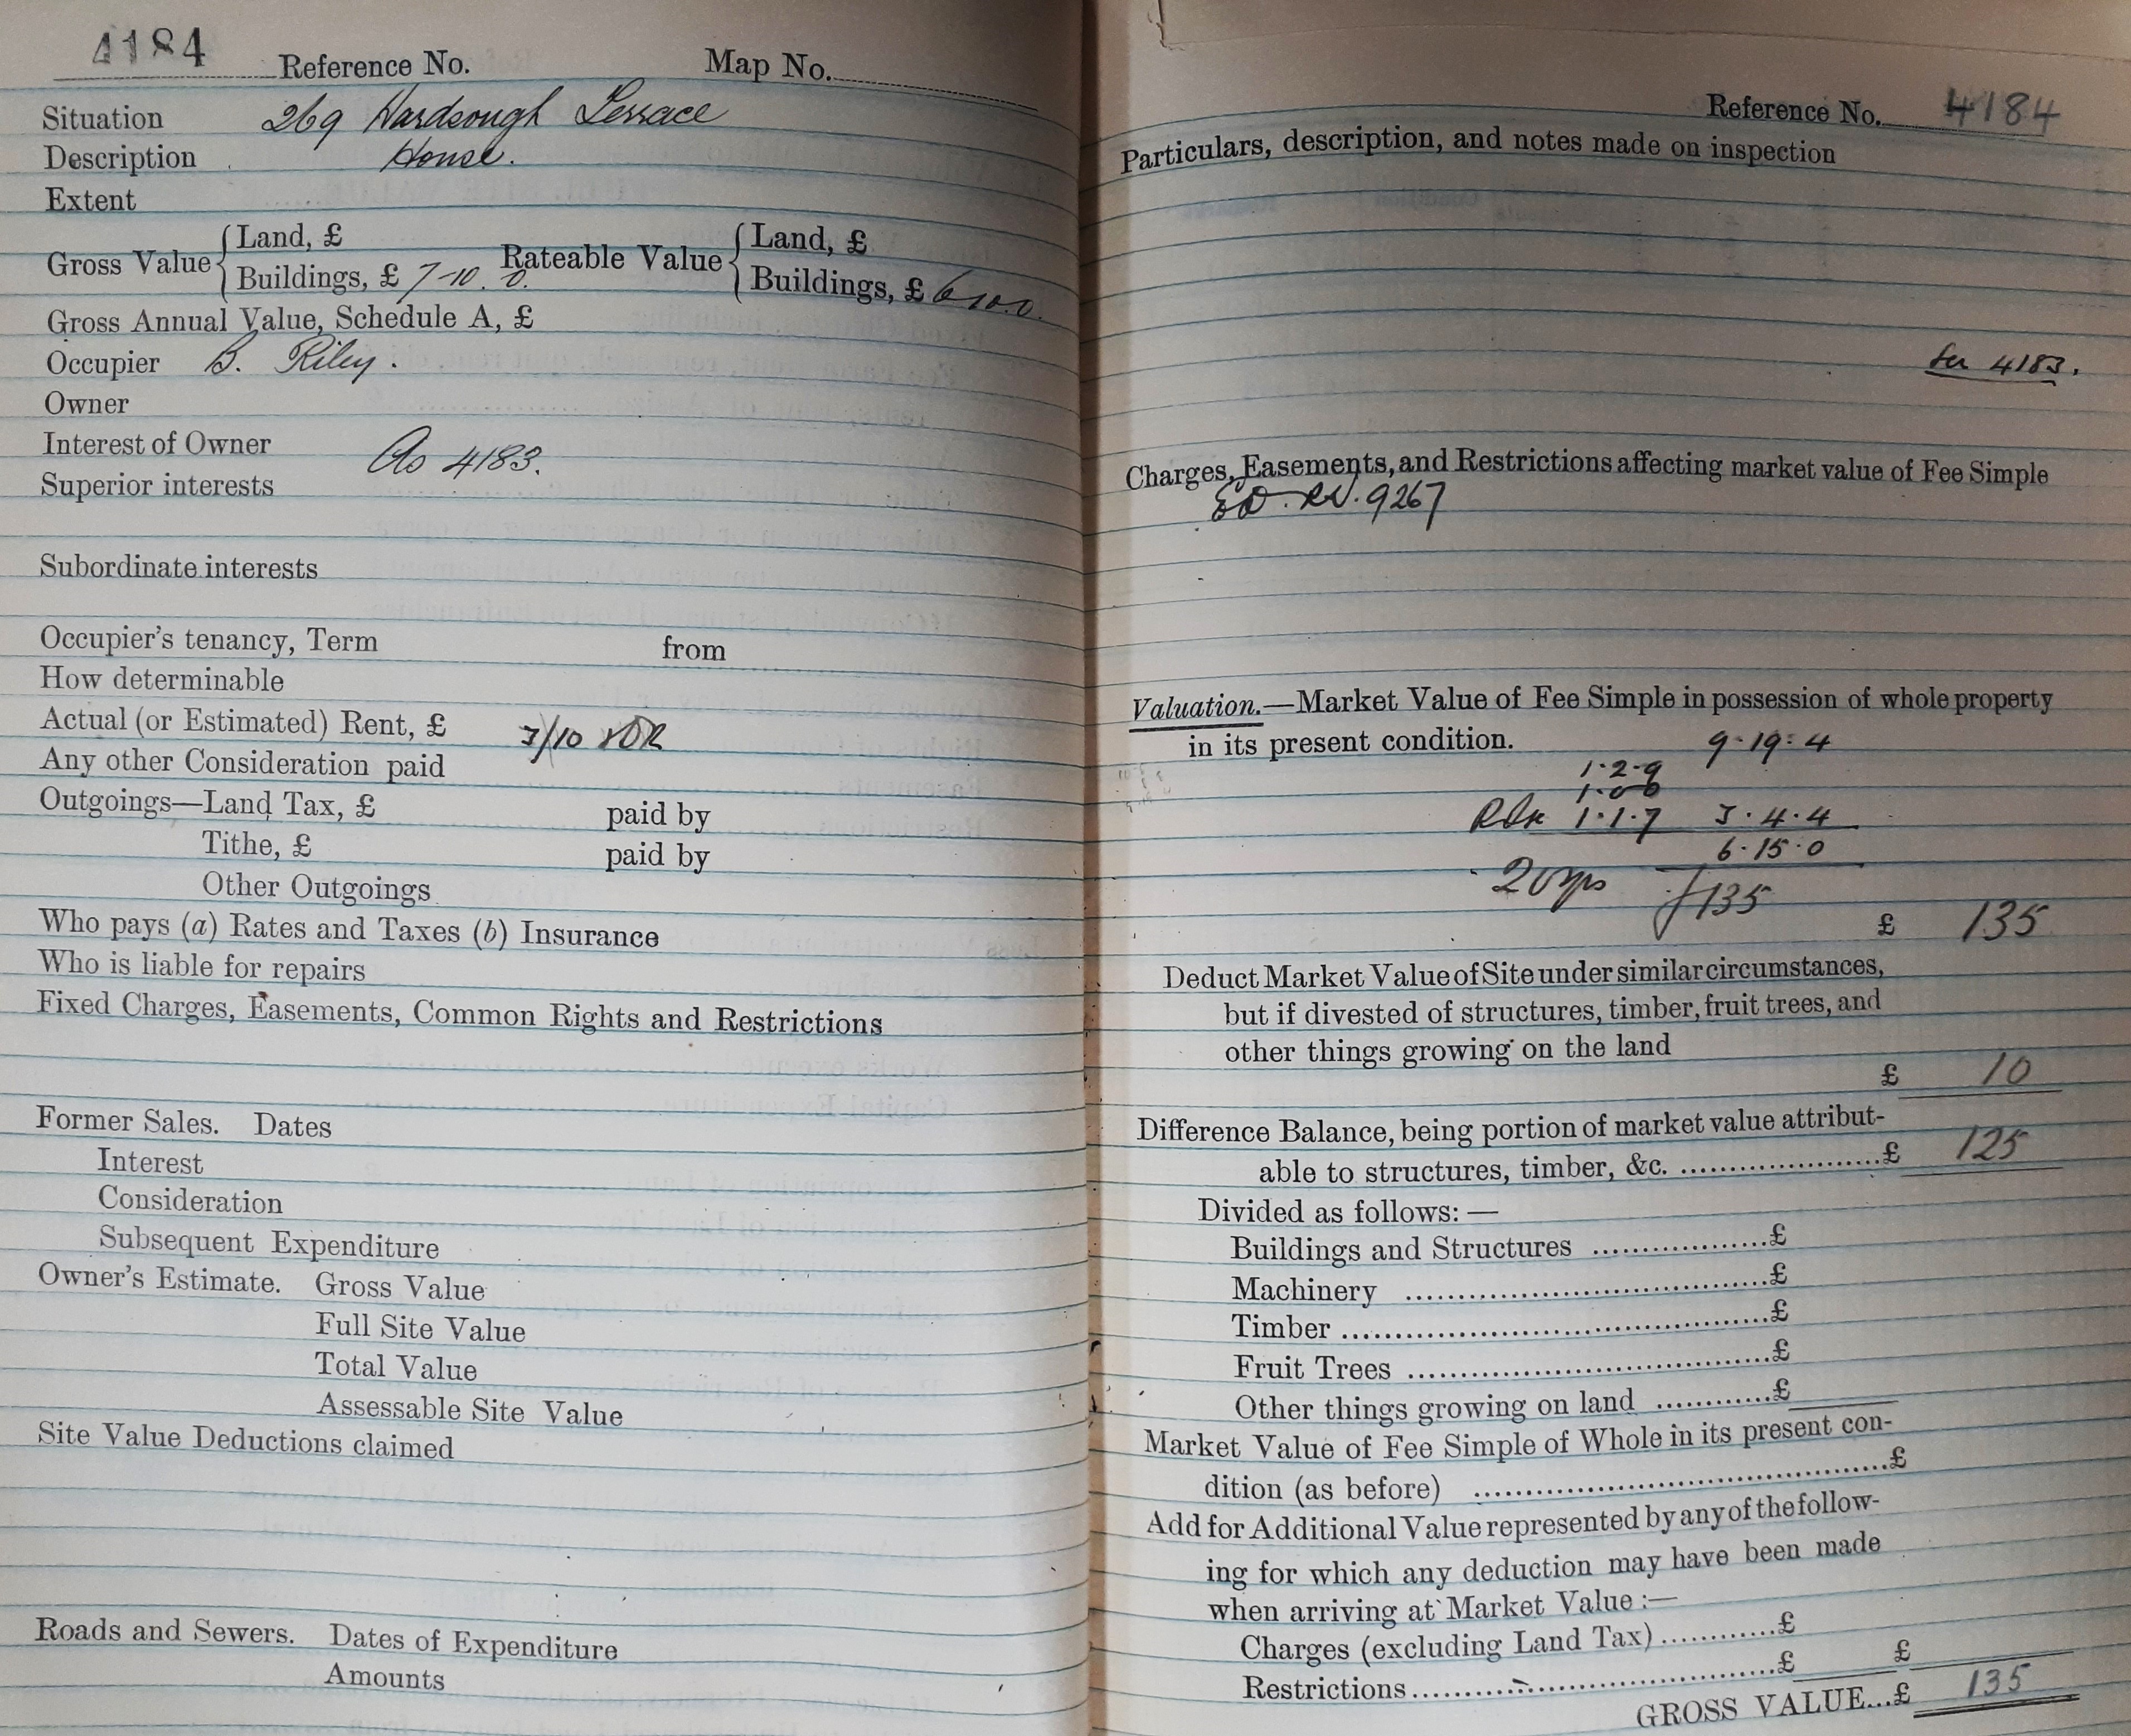 4184 Reference No. Map No.
Situation 269 Hardsough Terrace
Description House.
Extent
Gross Value { Land, £ Rateable Value { Land, £
Buildings, £ 7-10. 0. Buildings, £ 6.0.0.
Gross Annual Value, Schedule A, £
Occupier B. Riley.
Owner
Interest of Owner
As 4183.
Superior interests
Subordinate interests
Occupier's tenancy, Term from
How determinable
Actual (or Estimated) Rent, £ 3/10
Any other Consideration paid
Outgoings—Land Tax, £ paid by
Tithe, £ paid by
Other Outgoings
Who pays (a) Rates and Taxes (b) Insurance
Who is liable for repairs
Fixed Charges, Easements, Common Rights and Restrictions
Former Sales. Dates
Interest
Consideration
Subsequent Expenditure
Owner's Estimate. Gross Value
Full Site Value
Total Value
Assessable Site Value
Site Value Deductions claimed
Roads and Sewers. Dates of Expenditure
Amounts
Reference No. 4184
Particulars, description, and notes made on inspection
See 4183.
Charges, Easements, and Restrictions affecting market value of Fee Simple
9267
Valuation.—Market Value of Fee Simple in possession of whole property
in its present condition. 9.19.4
1.2.9
1.0.6
1.1.7 3.4.4
6.15.0
20 yps £135
£ 135
Deduct Market Value of Site under similar circumstances,
but if divested of structures, timber, fruit trees, and
other things growing on the land
£ 10
Difference Balance, being portion of market value attribut-
able to structures, timber, &c. .....................£ 125
Divided as follows:—
Buildings and Structures ..................£
Machinery .....................................£
Timber ...........................................£
Fruit Trees .....................................£
Other things growing on land ............£
Market Value of Fee Simple of Whole in its present con-
dition (as before) ..........................................£
Add for Additional Value represented by any of the follow-
ing for which any deduction may have been made
when arriving at Market Value:—
Charges (excluding Land Tax)............£
Restrictions.....................................£ £
GROSS VALUE...£ 135